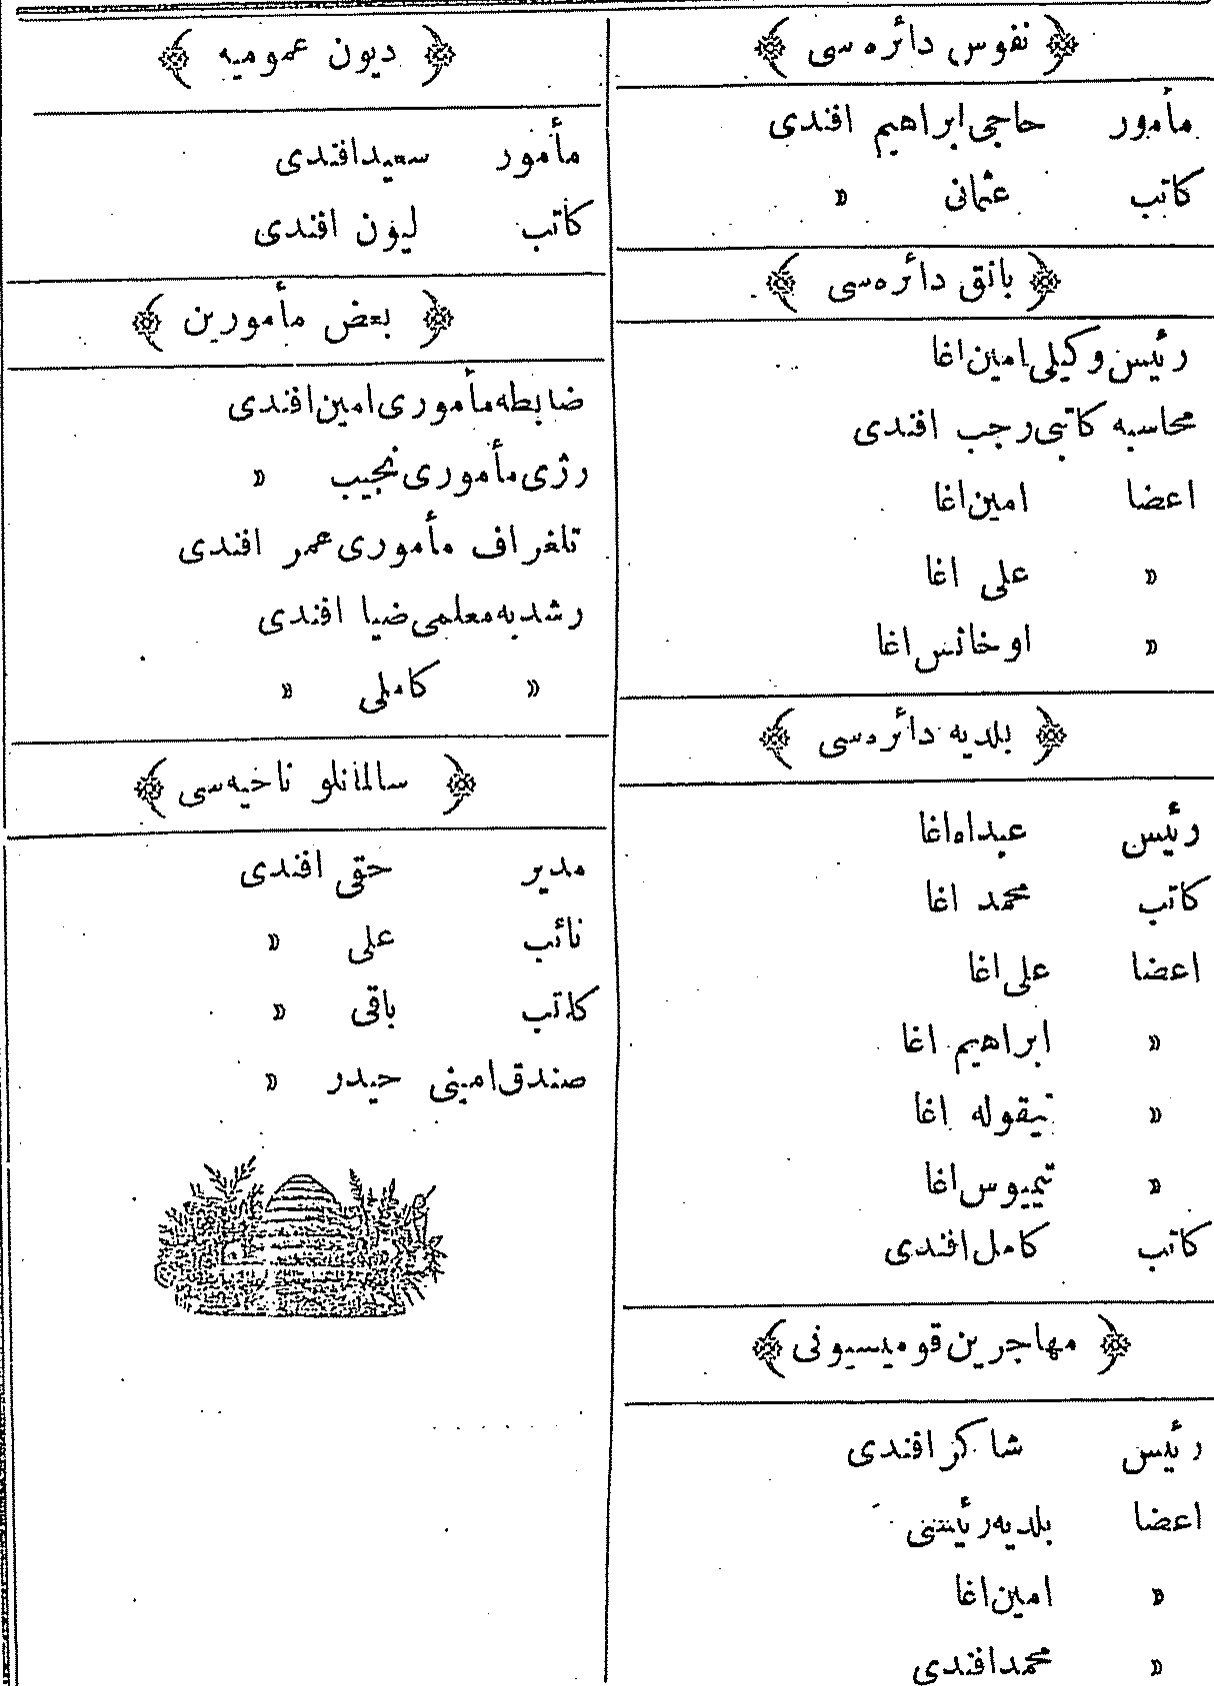 ﴿ نفوس دائره‌سی ﴾
مأمور حاجی ابراهیم افندی
كاتب عثمانی »
﴿ بانق دائره‌سی ﴾
رئیس وكیلی امین اغا
محاسبه كاتبی رجب افندی
اعضا امین اغا
» علی اغا
» اوخانس اغا
﴿ بلدیه دائره‌سی ﴾
رئیس عبداه اغا
كاتب محمد اغا
اعضا علی اغا
» ابراهیم اغا
» نیقوله اغا
» اغا
كاتب كامل افندی
﴿ مهاجرین قومیسیونی ﴾
رئیس شاكر افندی
اعضا بلدیه رئیسی
» امین اغا
» محمد افندی
﴿ دیون عمومیه ﴾
مأمور سعید افندی
كاتب لیون افندی
﴿ بعض مأمورین ﴾
ضابطه مأموری امین افندی
رژی مأموری نجیب »
تلغراف مأموری عمر افندی
رشدیه معلمی ضیا افندی
» كاملی »
﴿ سالمانلو ناحیه‌سی ﴾
مدیر حقی افندی
نائب علی »
كاتب باقی »
صندق امینی حیدر »